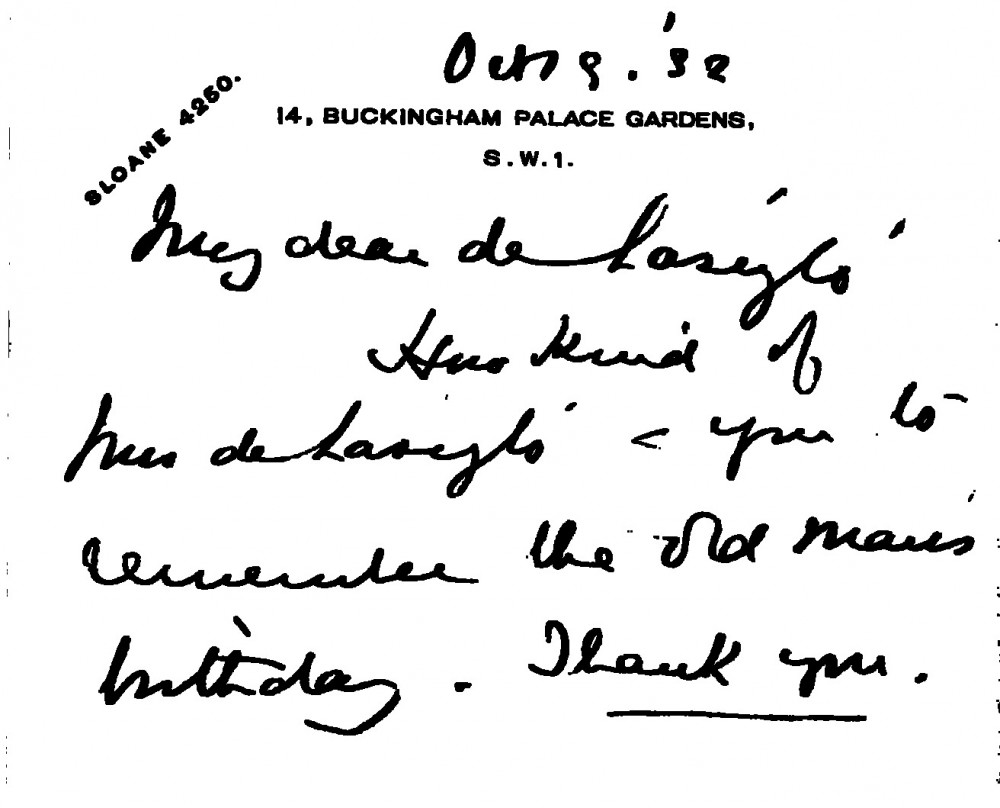 Oct 19. '32
SLOANE 4250.
14, BUCKINGHAM PALACE GARDENS,
S.W.1.
My dear de László
How kind of
Mrs de László & you to
remember the old man's
birthday. Thank you.